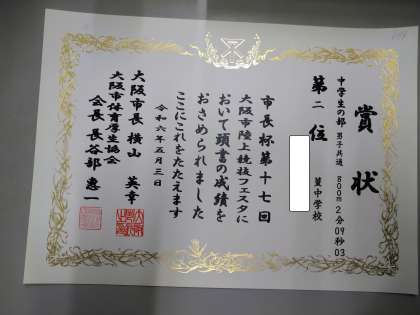 賞状
中学生の部 男子共通 800m 2分09秒03
第二位
菫中学校
市長杯第十七回
大阪市陸上競技フェスタに
おいて頭書の成績を
おさめられました
ここにこれをたたえます
令和六年五月三日
大阪市長 横山英幸
大阪市体育厚生協会
会長 長谷部惠一